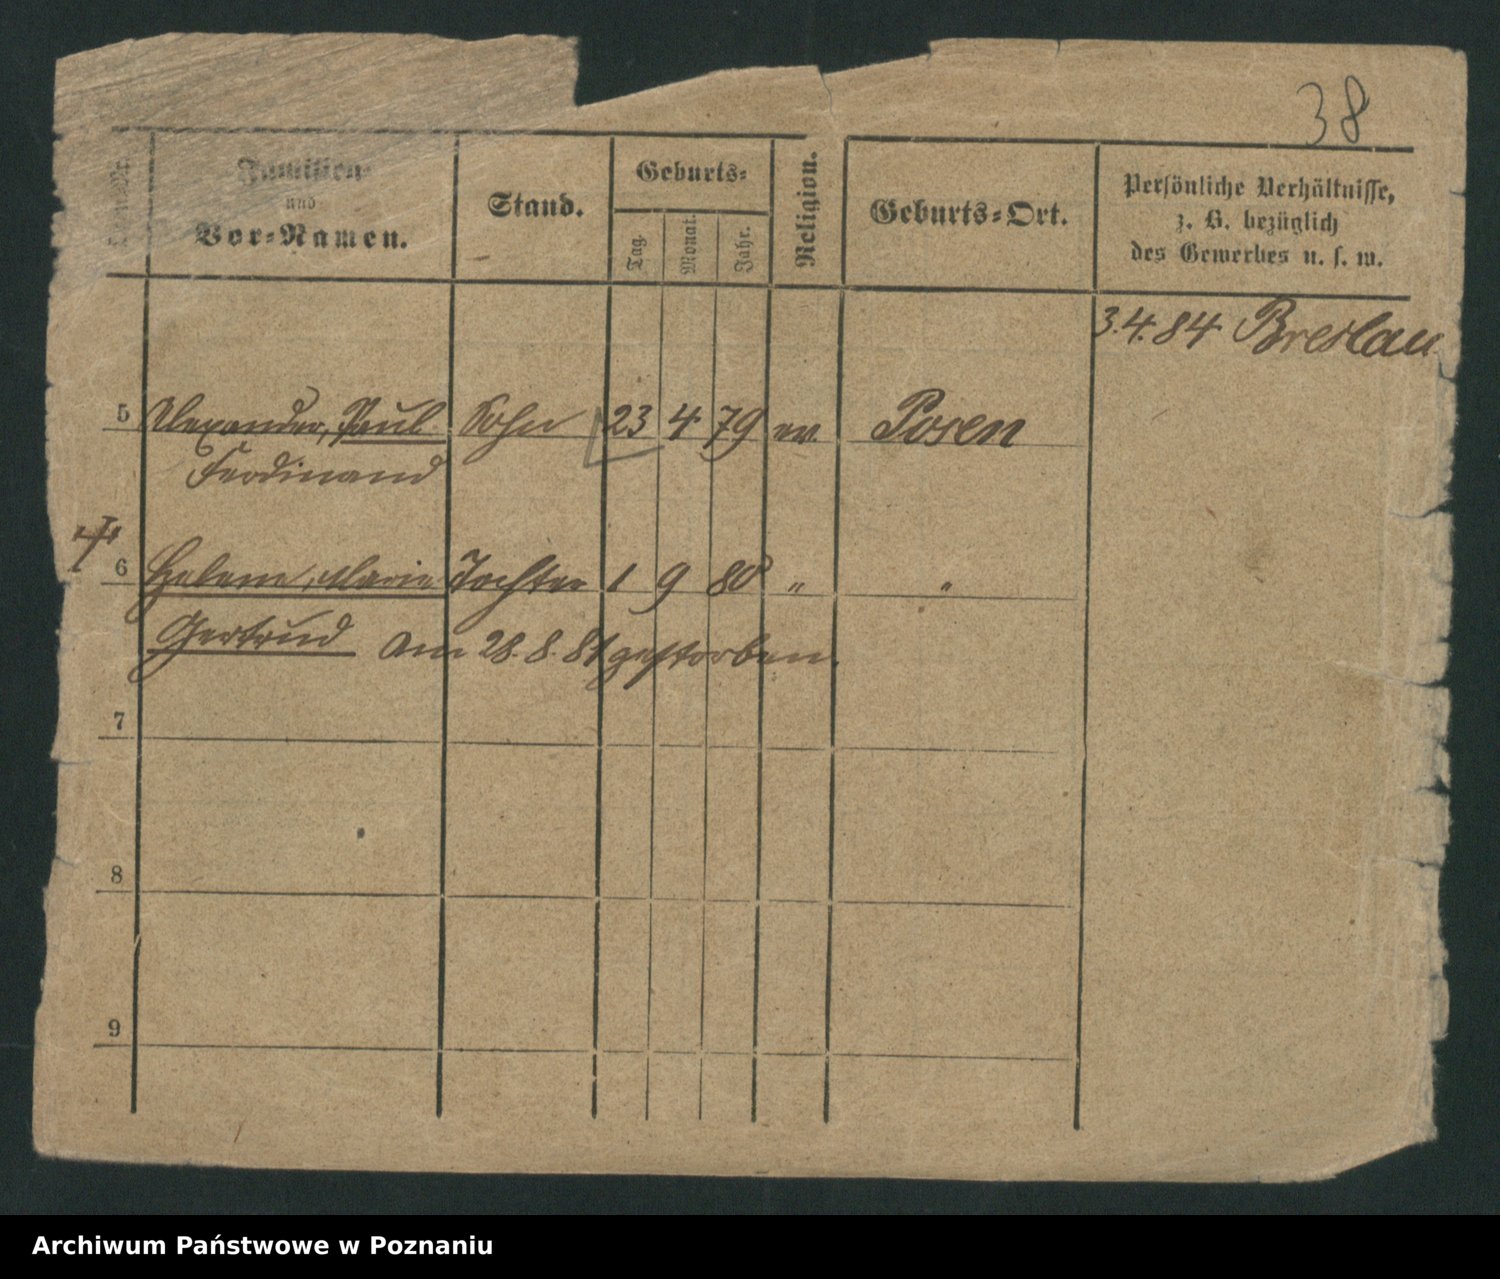 38
Laufende Nr.
Familien-
und
Vor-Namen.
Stand.
Geburts-
Tag.
Monat.
Jahr.
Religion.
Geburts-Ort.
Persönliche Verhältnisse,
z. B. bezüglich
des Gewerbes u. s. w.
3.4.84 Breslau
5 Alexander, Paul Sohn 23 4 79 ev Posen
Ferdinand
6 Helene, Marie Tochter 1 9 80 " "
Gertrud am 28.8.81 gestorben.
7
8
9
Archiwum Państwowe w Poznaniu